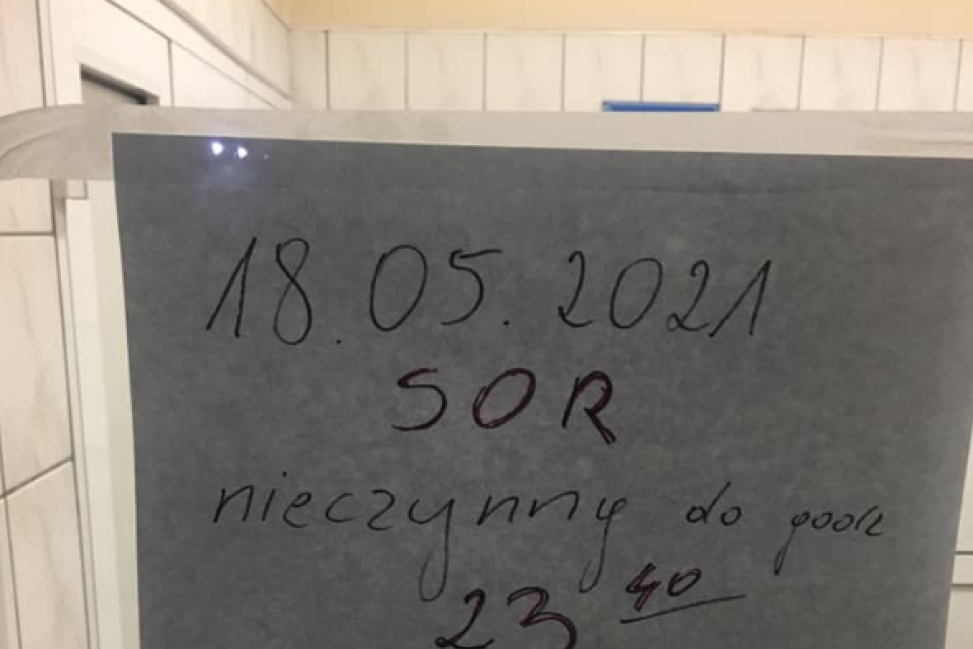 18.05.2021
SOR
nieczynny do godz
23 40